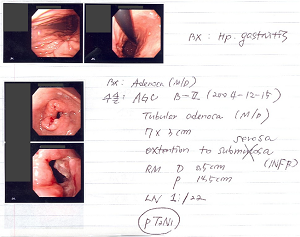 BX: Hp. gastritis
BX: Adenoca (M/D)
수술: AGC B-II (2004-12-15)
Tubular adenoca (M/D)
7 x 3 cm
serosa
extention to submucosa
(INFβ)
RM D 0.5cm
P 14.5cm
LN 1/22
pT2N1